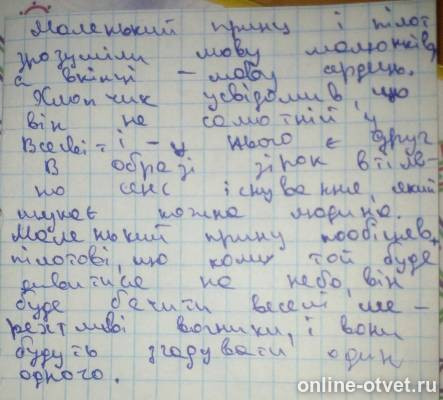 Маленький принц і пілот
зрозуміли мову малюнків,
а вкінці – мову сердець.
Хлопчик усвідомив, що
він не самотній у
Всесвіті – у нього є друг
В образі зірок втіле-
но сенс існування, який
шукає кожна людина.
Маленький принц пообіцяв
пілотові, що коли той буде
дивитися на небо, він
буде бачити веселі ме-
рехтливі вогники, і вони
будуть згадувати один
одного.
online-otvet.ru